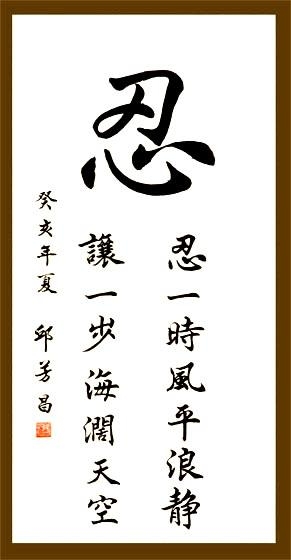 忍
忍一時風平浪静
讓一步海濶天空
癸亥年夏 邱芳昌